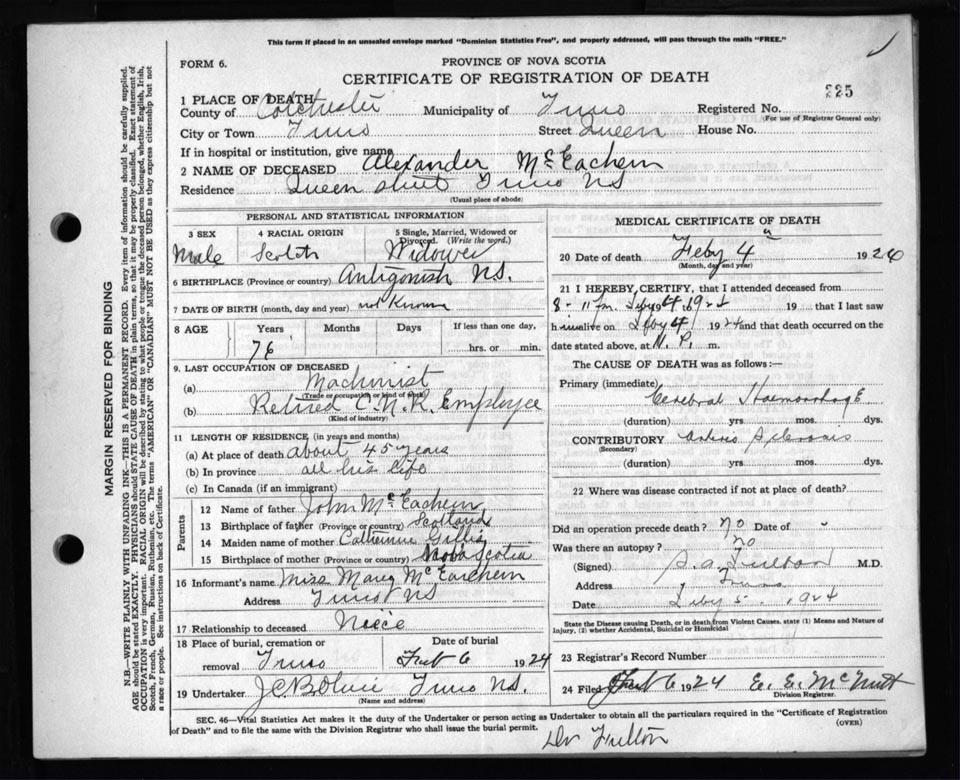 This form if placed in an unsealed envelope marked "Dominion Statistics Free", and properly addressed, will pass through the mails "FREE."
FORM 6.
PROVINCE OF NOVA SCOTIA
CERTIFICATE OF REGISTRATION OF DEATH
225
1 PLACE OF DEATH
County of Colchester Municipality of Truro Registered No.
(For use of Registrar General only)
City or Town Truro Street Queen House No.
If in hospital or institution, give name
2 NAME OF DECEASED Alexander McEachern
Residence Queen street Truro NS
(Usual place of abode)
PERSONAL AND STATISTICAL INFORMATION
3 SEX 4 RACIAL ORIGIN 5 Single, Married, Widowed or Divorced. (Write the word.)
Male Scotch Widower
6 BIRTHPLACE (Province or country) Antigonish NS.
7 DATE OF BIRTH (month, day and year) not Known
8 AGE Years Months Days If less than one day,
76 hrs. or min.
9. LAST OCCUPATION OF DECEASED
(a) Machinist
(Trade or occupation or kind of work)
(b) Retired C.N.R. Employee
(Kind of industry)
11 LENGTH OF RESIDENCE (in years and months)
(a) At place of death about 45 years
(b) In province all his life
(c) In Canada (if an immigrant)
Parents
12 Name of father John McEachern
13 Birthplace of father (Province or country) Scotland
14 Maiden name of mother Catherine Gillis
15 Birthplace of mother (Province or country) Nova Scotia
16 Informant's name Miss Mary McEachern
Address Truro NS
17 Relationship to deceased Niece
18 Place of burial, cremation or removal Truro Date of burial Feb 6 1924
19 Undertaker Truro NS.
(Name and address)
MEDICAL CERTIFICATE OF DEATH
20 Date of death Feby 4 192
(Month, day and year)
21 I HEREBY CERTIFY, that I attended deceased from
Feby 4 1924 19 that I last saw
h alive on Feby 4 1924 and that death occurred on
date stated above, at m.
The CAUSE OF DEATH was as follows:—
Primary (immediate) Cerebral Haemorrhage
(duration) yrs. mos. dys.
CONTRIBUTORY Arterio Sclerosis
(Secondary)
(duration) yrs mos. dys.
22 Where was disease contracted if not at place of death?
Did an operation precede death? no Date of
Was there an autopsy? No
(Signed) S. A. Fulton M.D.
Address Truro
Date Feby 5. 1924
State the Disease causing Death, or in death from Violent Causes, state (1) Means and Nature of
Injury, (2) whether Accidental, Suicidal or Homicidal
23 Registrar's Record Number
24 Filed Feb 6 1924 E. E. McNutt
Division Registrar.
SEC. 46—Vital Statistics Act makes it the duty of the Undertaker or person acting as Undertaker to obtain all the particulars required in the "Certificate of Registration
of Death" and to file the same with the Division Registrar who shall issue the burial permit. (OVER)
Dr Fulton
MARGIN RESERVED FOR BINDING
N.B.—WRITE PLAINLY WITH UNFADING INK—THIS IS A PERMANENT RECORD. Every item of information should be carefully supplied.
AGE should be stated EXACTLY. PHYSICIANS should STATE CAUSE OF DEATH in plain terms, so that it may be properly classified. Exact statement of
OCCUPATION is very important. RACIAL ORIGIN will be described by stating to what people or tongue the deceased person belonged, whether English, Irish,
Scotch, French, German, Russian, Ruthenian, etc. The terms "AMERICAN" or "CANADIAN" MUST NOT BE USED as they express citizenship but not
a race or people. See instructions on back of Certificate.